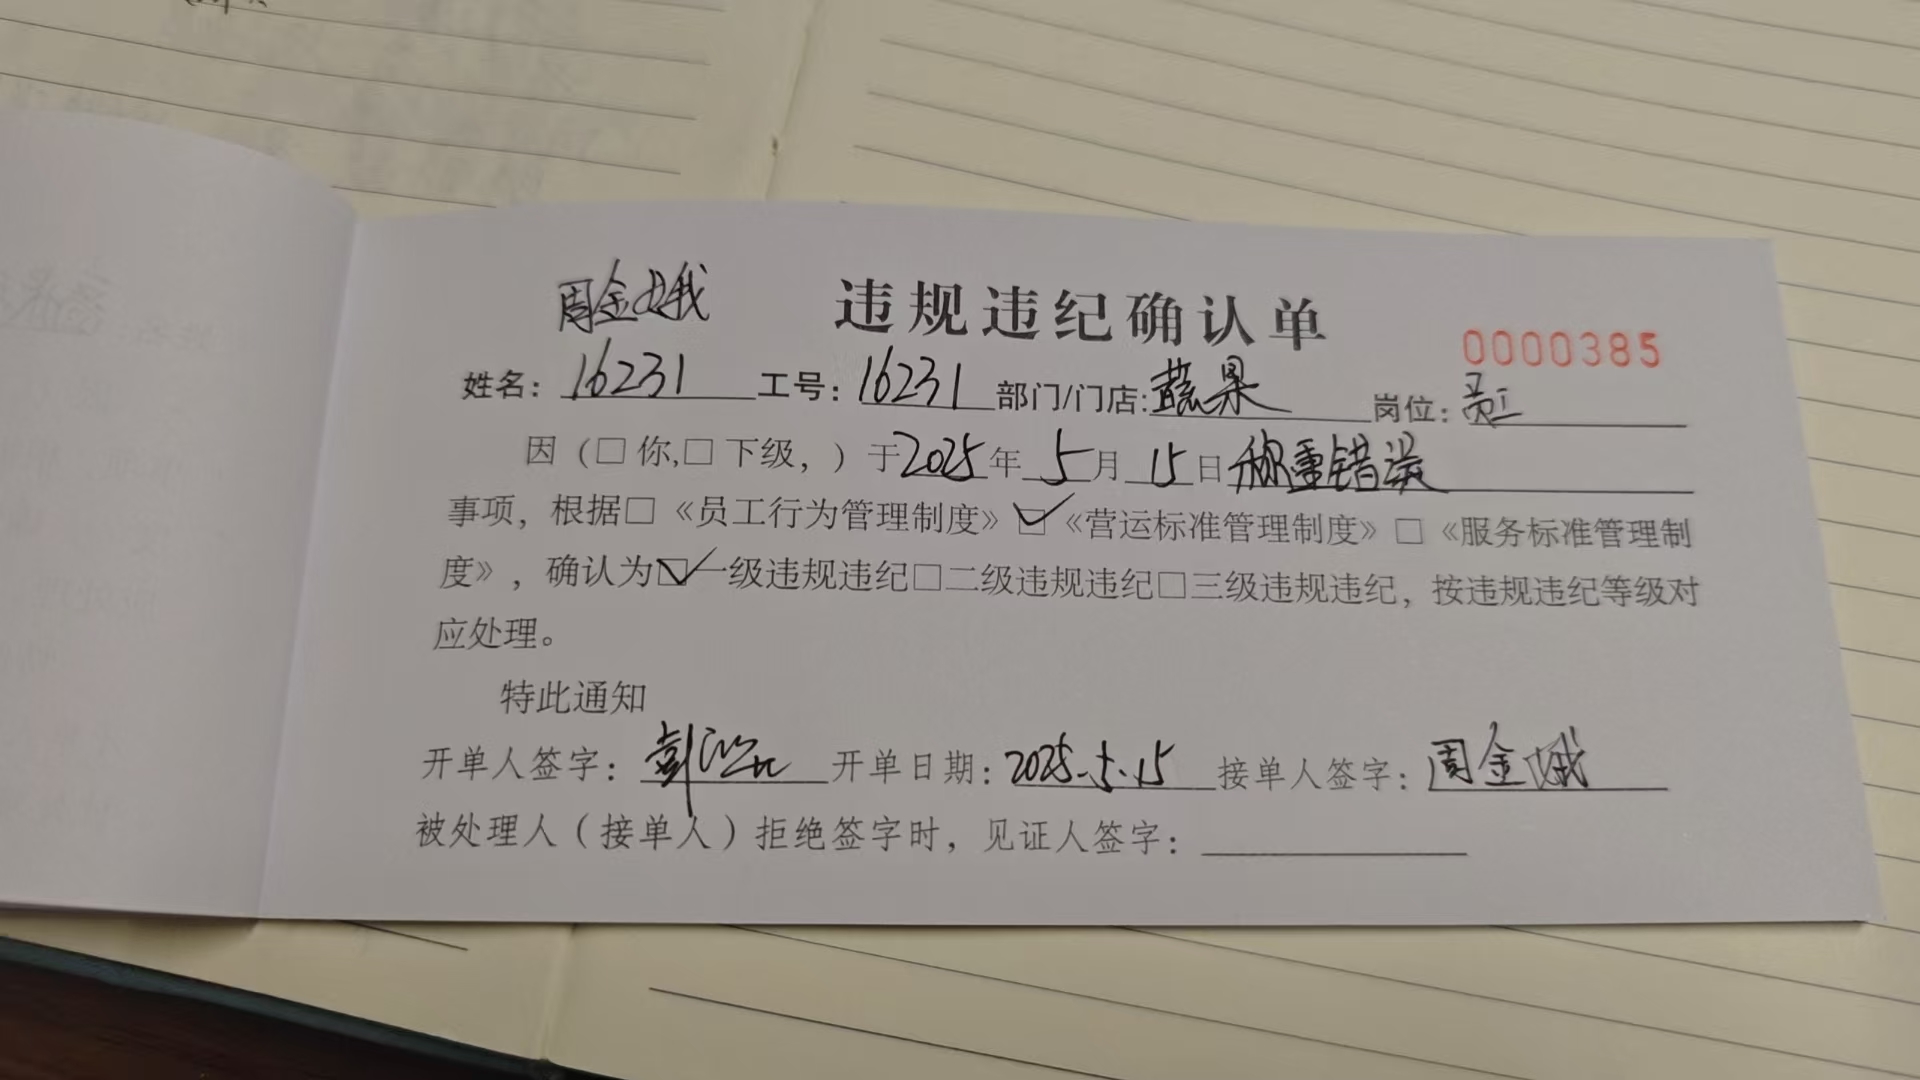 周金娥 违规违纪确认单
0000385
姓名：16231 工号：16231 部门/门店:蔬果 岗位：员工
因（□ 你,□ 下级，）于2025年 5月 15日称重错误
事项，根据□《员工行为管理制度》☑《营运标准管理制度》□《服务标准管理制
度》，确认为☑一级违规违纪□二级违规违纪□三级违规违纪，按违规违纪等级对
应处理。
特此通知
开单人签字：彭 开单日期：2025.5.15 接单人签字：周金娥
被处理人（接单人）拒绝签字时，见证人签字：